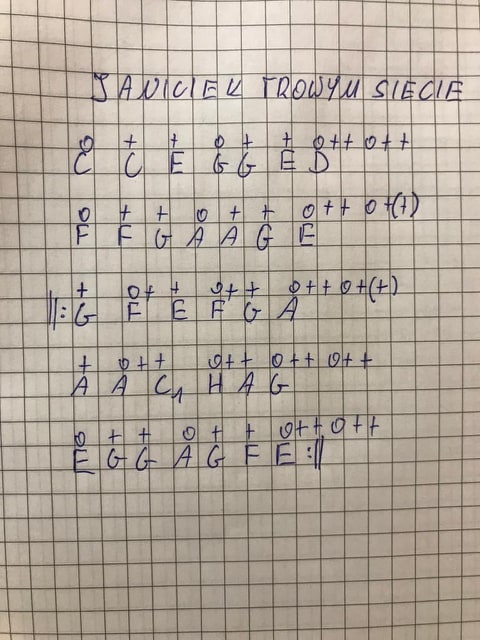 JANICIEK TROWYM SIECIE
o + + o + + o++ o++
C C E G G E D
o + + o + + o++ o+(+)
F F G A A G E
+ o+ + o+ + o++ o+(+)
||: G F E F G A
+ o+ + o+ + o++ o++
A A C1 H A G
o + + o + + o++ o++
E G G A G F E :||